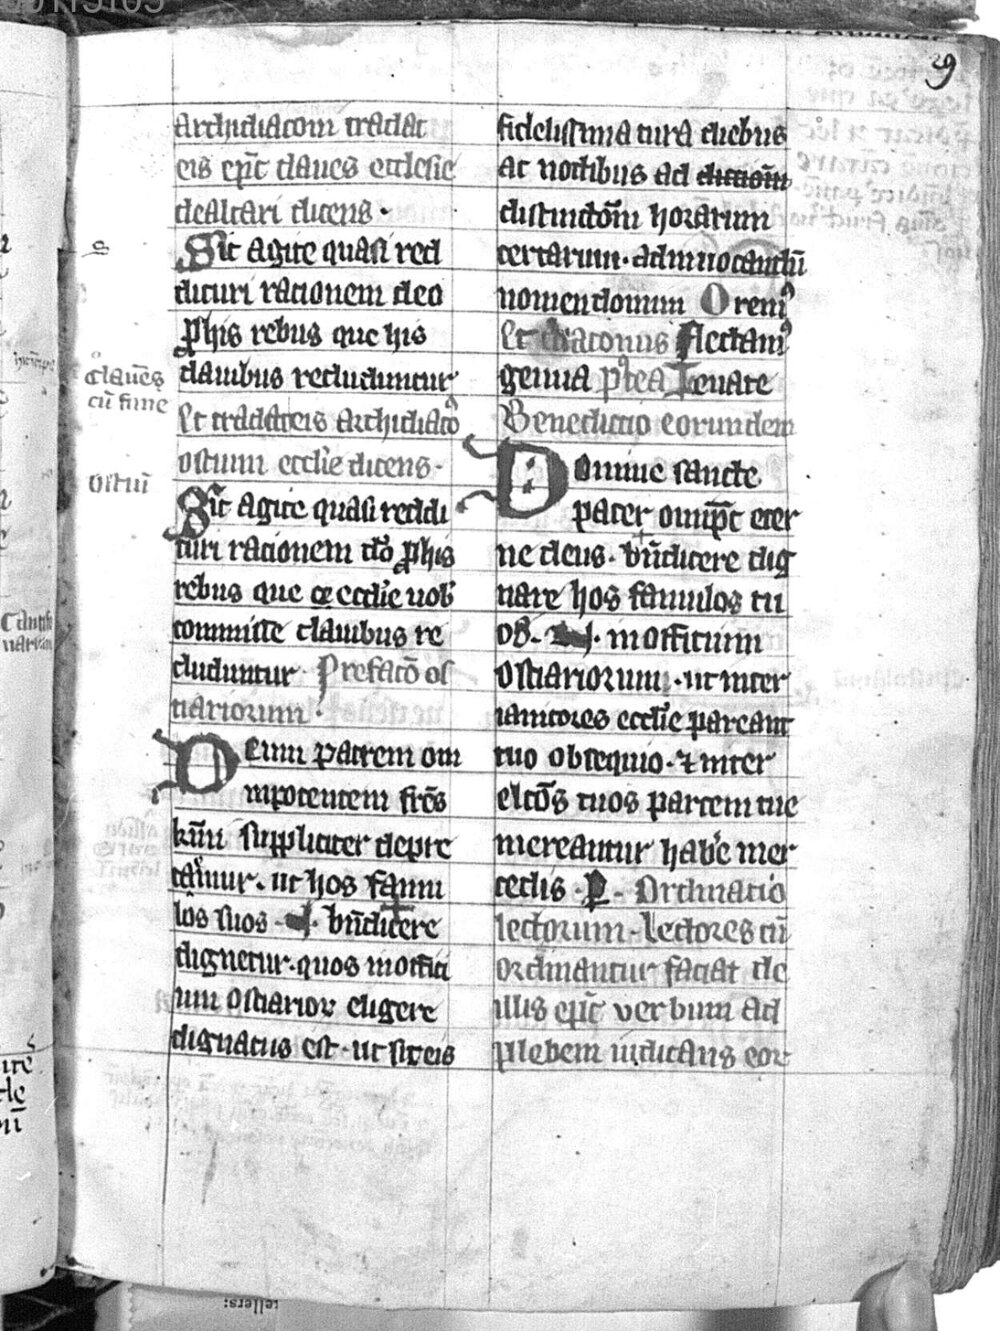 9
archidiaconi tradat
eis epc claues ecclesie
dealtari dicens.
Sic agite quasi red
dituri racionem deo
phis rebus que his
clauibus recluduntur
Et tradat eis archidiaco
ostium ecclie dicens.
Sic agite quasi reddi
turi racionem do phis
rebus que ce ecclie uob
commisse clauibus re
cluduntur. Prefaco os
tiariorum.
Deum patrem om
nipotentem frs
kmi suppliciter depre
camur. ut hos famu
los suos .N. bndicere
dignetur. quos inoffici
um ostiarior eligere
dignatus est. ut sit eis
claues
cu fune
ostiu
fidelissima cura diebus
ac noctibus ad
distinctom horarum
certarum. adinuocandu
nomen domini Orem
Et diaconus flectam
genua ptea Leuate
Benedictio eorundem
Domine sancte
pater omipc eter
ne deus. bndicere dig
nare hos famulos tu
os. .N. inofficium
ostiariorum. ut inter
ianitores ecclie pareant
tuo obsequio. et inter
elcos tuos partem tue
mereantur habe mer
cedis. P. Ordinatio
lectorum. Lectores cu
ordinantur faciat de
illis epc verbum ad
plebem indicans eor